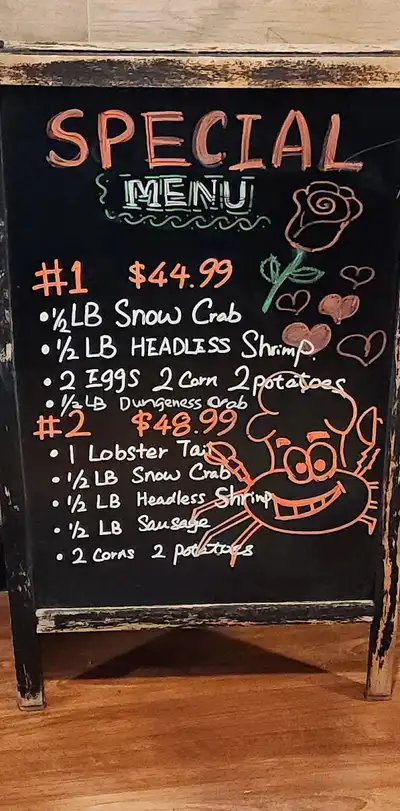 SPECIAL
MENU
#1 $44.99
•½ LB Snow Crab
•½ LB HEADLESS Shrimp.
•2 Eggs 2 Corn 2 potatoes
•½ LB Dungeness Crab
#2 $48.99
•1 Lobster Tail
•½ LB Snow Crab
•½ LB Headless Shrimp
•½ LB Sausage
•2 Corns 2 potatoes